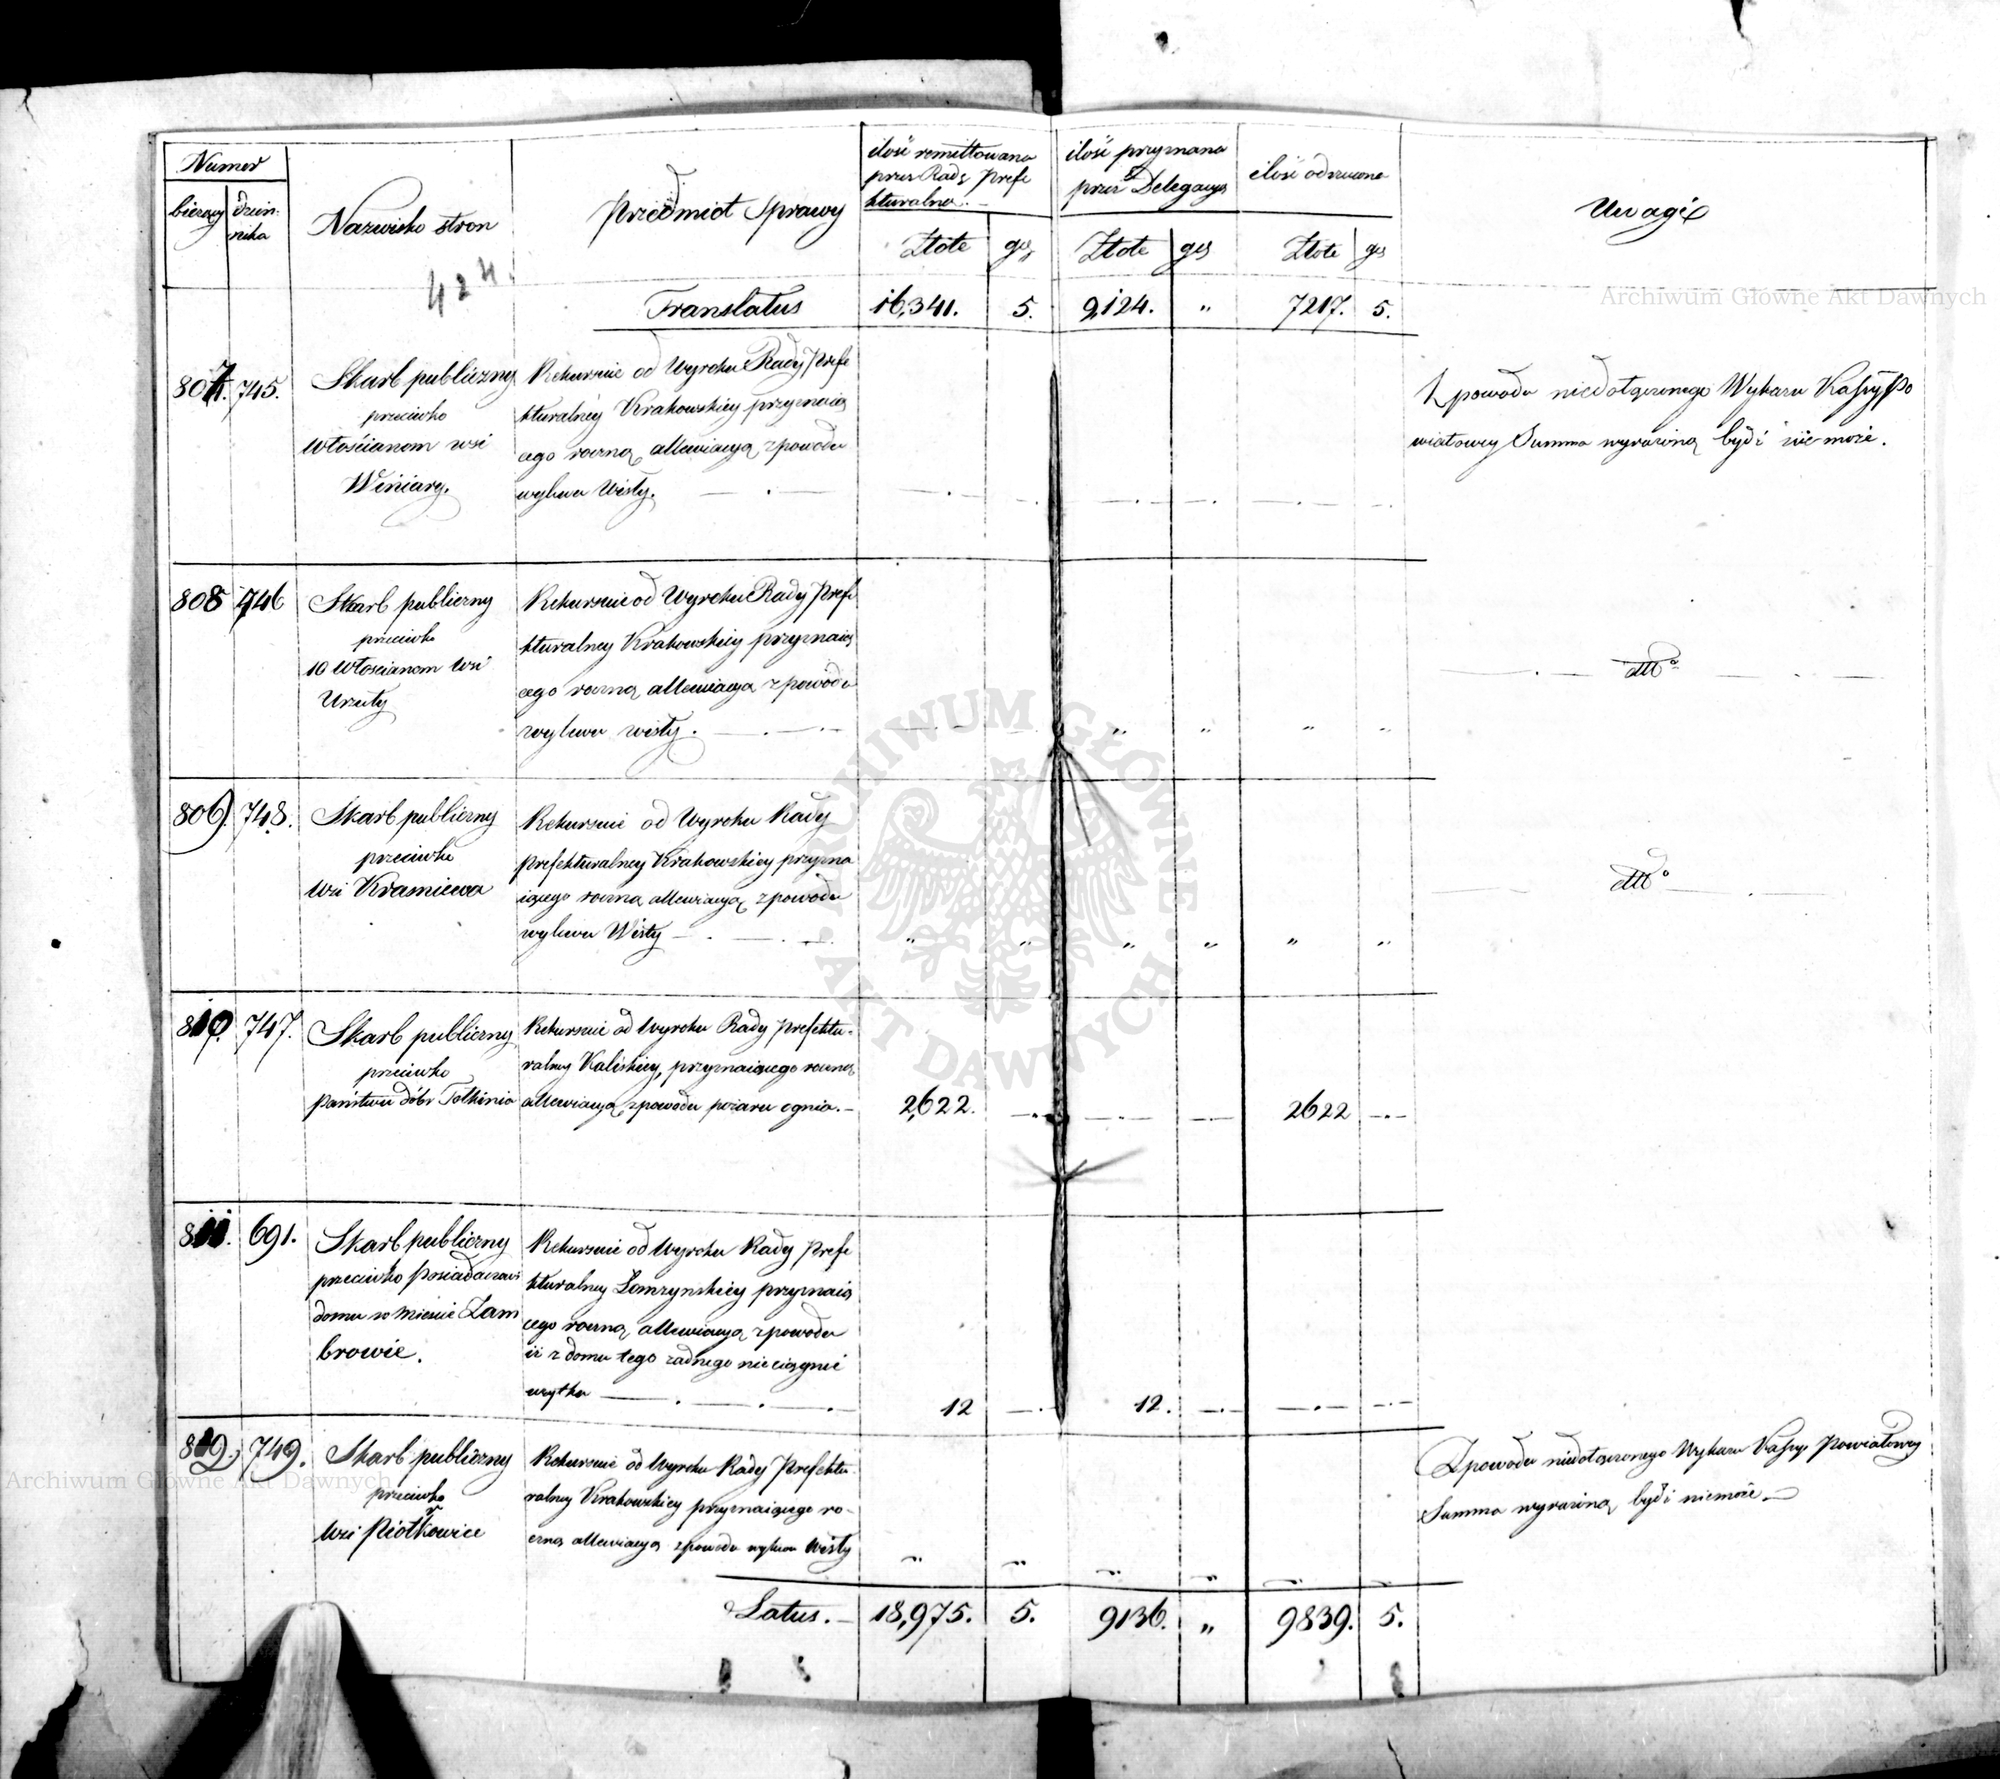 Numer
bieżący
dzien-
nika
Nazwisko stron
Przedmiot Sprawy
ilość remittowana
przez Radę Prefe
kturalną.
Złote
gr
ilość przyznana
przez Delegacyą
Złote
gr
ilość odrzucona
Złote
gr
Uwagi
424.
Translatus
16,341.
5.
9,124.
"
7217.
5.
807. 745.
Skarb publiczny
przeciwko
Włościanom wsi
Winiary.
Rekursuie od Wyroku Rady Prefe
kturalnéy Krakowskiey przyznaią
cego roczną allewiacyą z powodu
wylewu Wisły.
Z powodu niedołączonego Wykazu Kassy Po
wiatowey Summa wyrażoną bydź nie może.
808 746
Skarb publiczny
przeciwko
10 Włościanom Wsi
Urzuty
Rekursuie od Wyroku Rady Prefe
kturalney Krakowskiey przyznaią
cego roczną allewiacyą z powodu
wylewu wisły.
dtto
809. 748.
Skarb publiczny
przeciwko
Wsi Kraniewa
Rekursuie od Wyroku Rady
Prefekturalney Krakowskiey przyzna
iącego roczną allewiacyą z powodu
wylewu Wisły
dtto
810. 747.
Skarb publiczny
przeciwko
Państwu dóbr Tołkinia
Rekursuie od Wyroku Rady Prefektu-
ralney Kaliskiey, przyznaiącego roczną
allewiacyą z powodu pożaru ognia.
2,622.
2622
811. 691.
Skarb publiczny
przeciwko Posiadaczowi
domu w Mieście Zam
browie.
Rekursuie od Wyroku Rady Prefe
kturalney Łomzynskiey przyznaią
cego roczną allewiacyą z powodu
iż z domu tego żadnego nie ciągnie
użytku
12
12.
812. 749.
Skarb publiczny
przeciwko
Wsi Piotrkowice
Rekursuie od Wyroku Rady Prefektu
ralney Krakowskiey przyznaiącego ro-
czną allewiacyą z powodu wylewu Wisły
Z powodu niedołączonego Wykazu Kassy Powiatowey
Summa wyrażoną bydź niemoże.
Latus.
18,975.
5.
9136.
"
9839.
5.
Archiwum Główne Akt Dawnych
Archiwum Główne Akt Dawnych
ARCHIWUM GŁÓWNE
AKT DAWNYCH